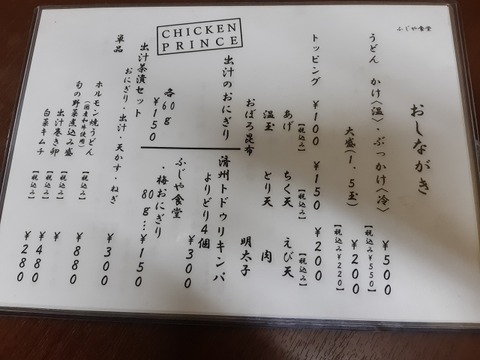 ふじや食堂
おしながき
うどん かけ〈温〉・ぶっかけ〈冷〉 ¥500
【税込み¥550】
大盛(1.5玉) ¥200
【税込み¥220】
トッピング ¥100 ¥150 ¥200
【税込み】 【税込み】 【税込み】
あげ ちく天 えび天
温玉 とり天 肉
おぼろ昆布 明太子
出汁のおにぎり
各60g
¥150
済州トドゥリキンパ
よりどり4個
¥300
ふじや食堂
・梅おにぎり
80g…¥150
CHICKEN
PRINCE
出汁茶漬セット
おにぎり・出汁・天かす・ねぎ ¥300
単品
ホルモン焼うどん 【税込み】 ¥880
(国産和牛使用)
旬の野菜煮込み盛 【税込み】 ¥
出汁巻き卵 【税込み】 ¥480
白菜キムチ 【税込み】 ¥280